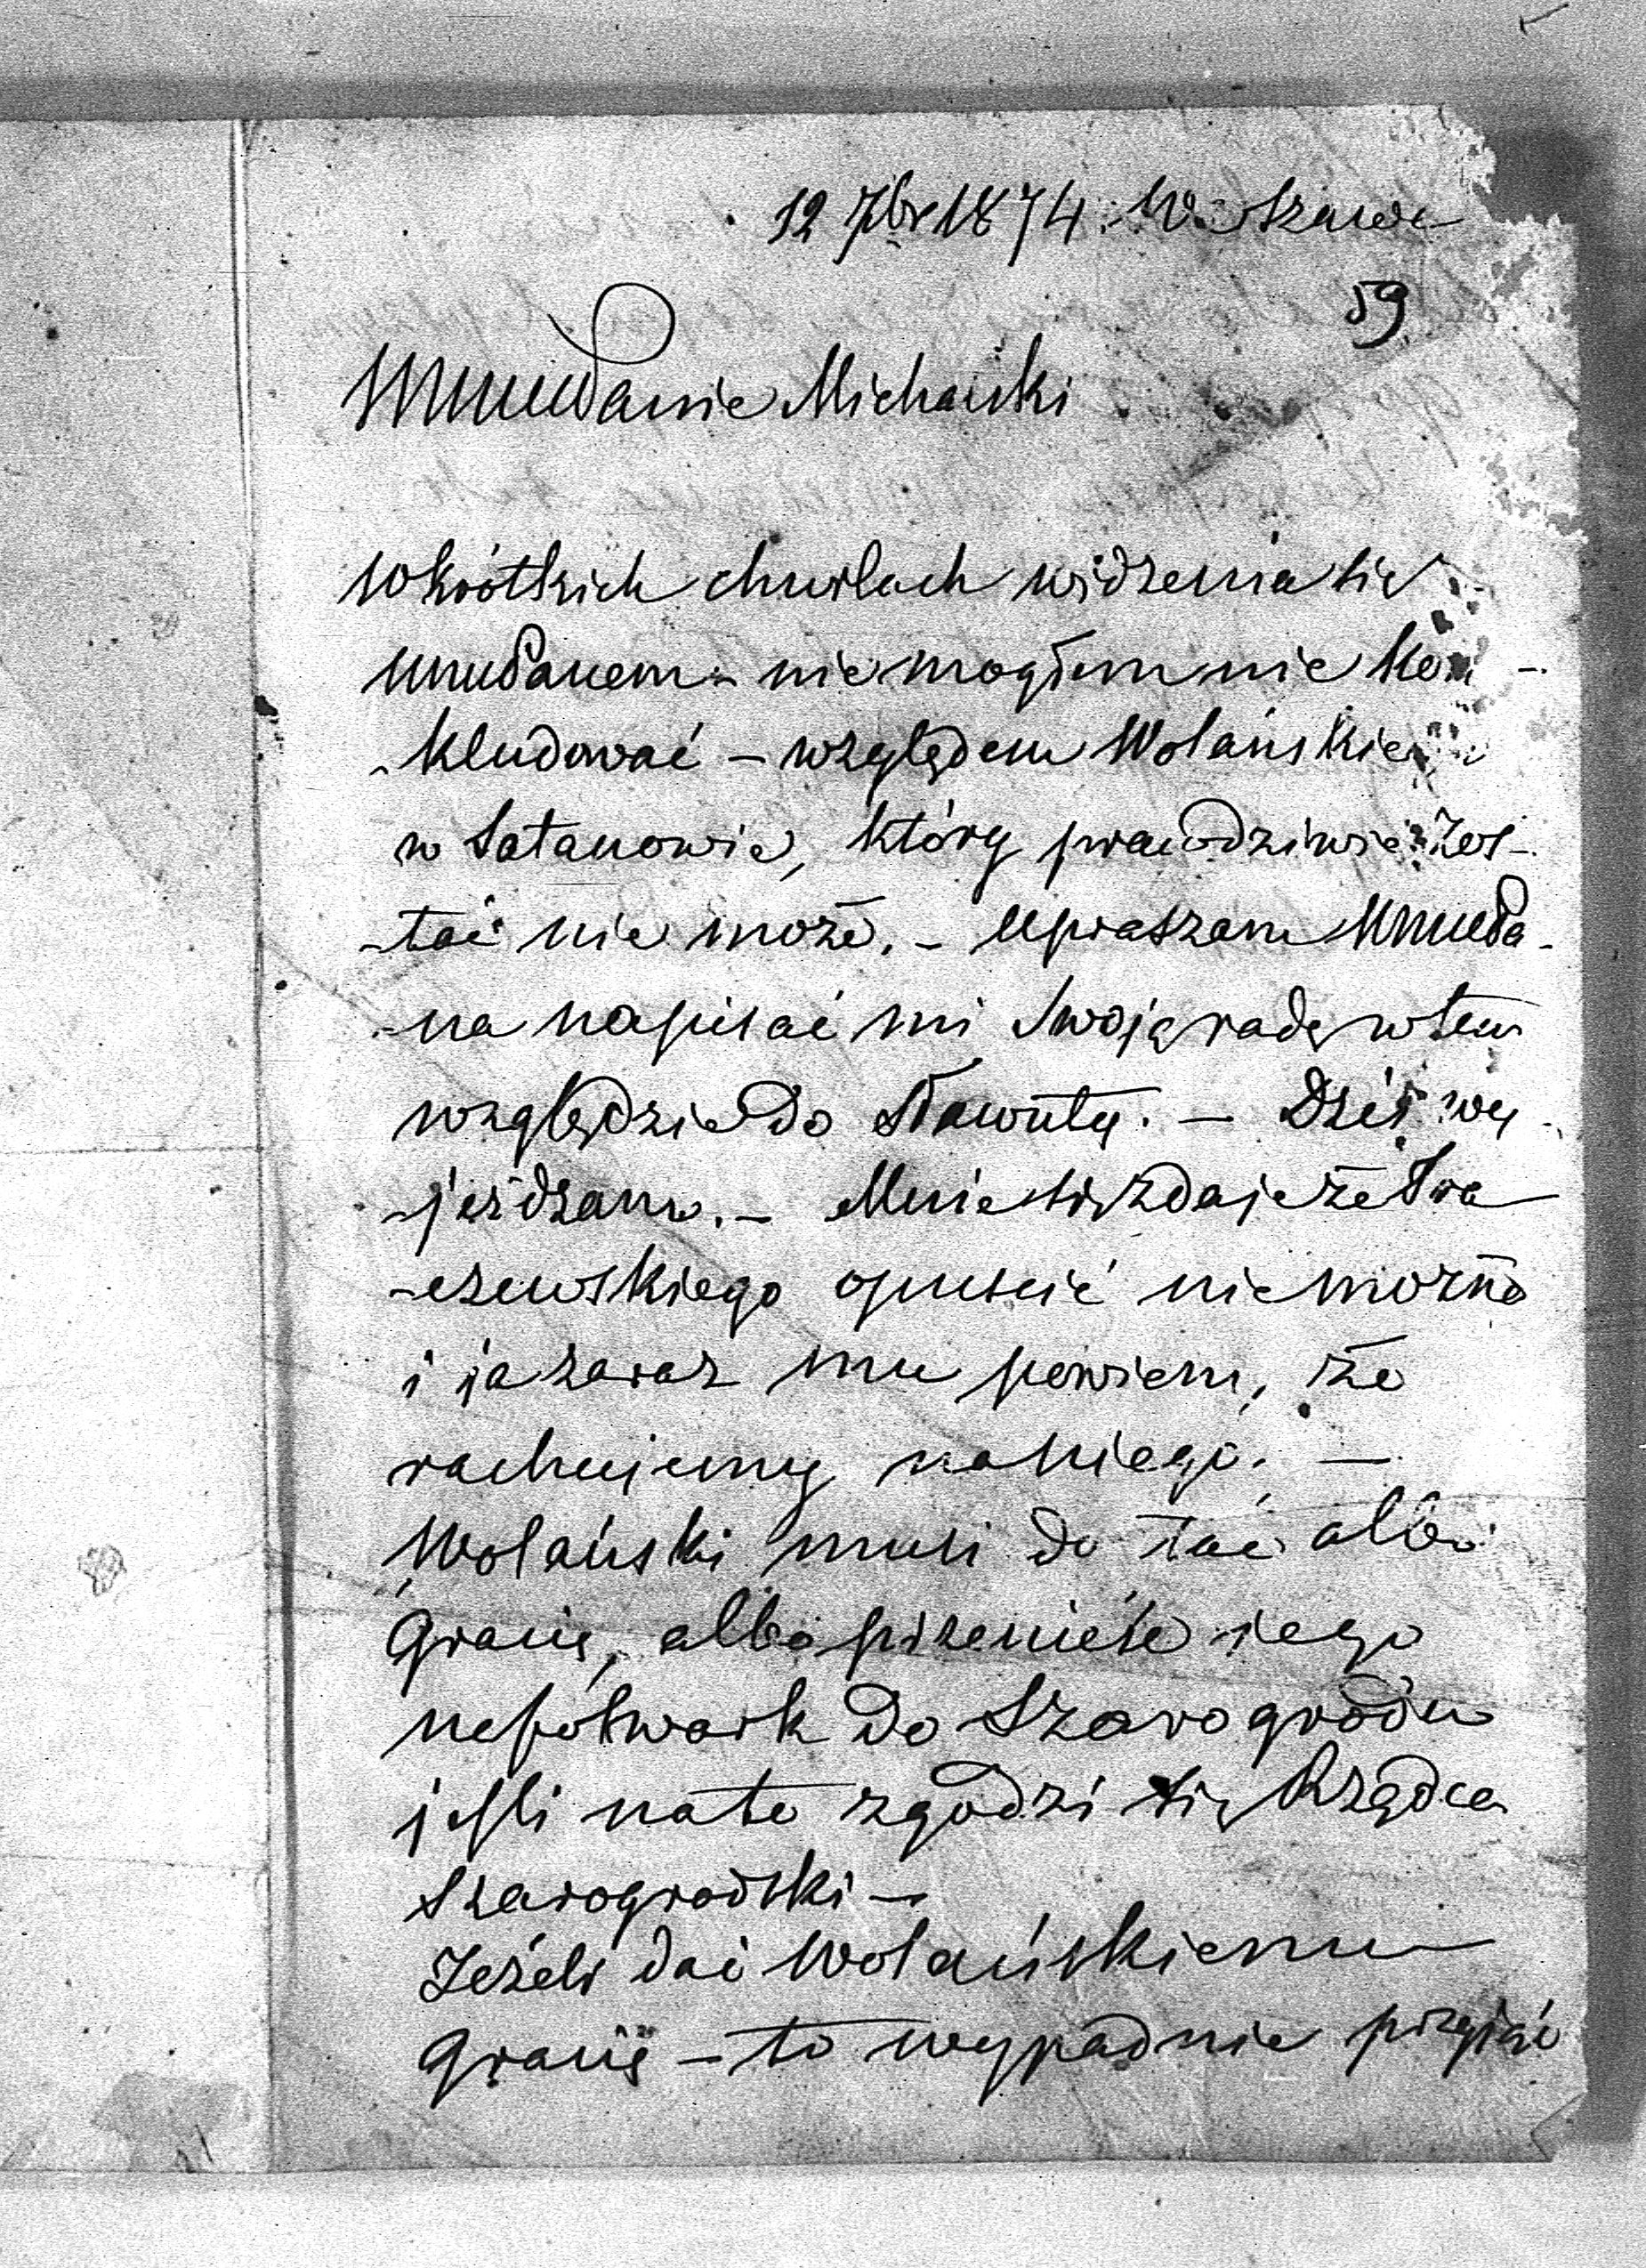 12 7br 1874 Warszawa
59
WmuPanie Michalski
W krótkich chwilach widzenia się
WmuPanem - nie mogłem nie kon-
-kludować - względem Wolańskiego
w Satanowie, który prawdziwie zos-
-tać nie może. - Upraszam WmuPa-
-na napisać mi Swoją radę w tem
względzie do Sławuty. - Dziś wy-
-jeżdżam. - Mnie się zdaje że Tra-
-czewskiego opuścić nie można
i ja zaraz mu powiem, że
rachujemy na niego. -
Wolański musi dostać albo
Granię, albo przenieść jego
na folwark do Szarogrodu
jeśli na to zgodzi się Rządca
Szarogrodski -
Jeżeli dać Wolańskiemu
Granię - to wypadnie przyjąć